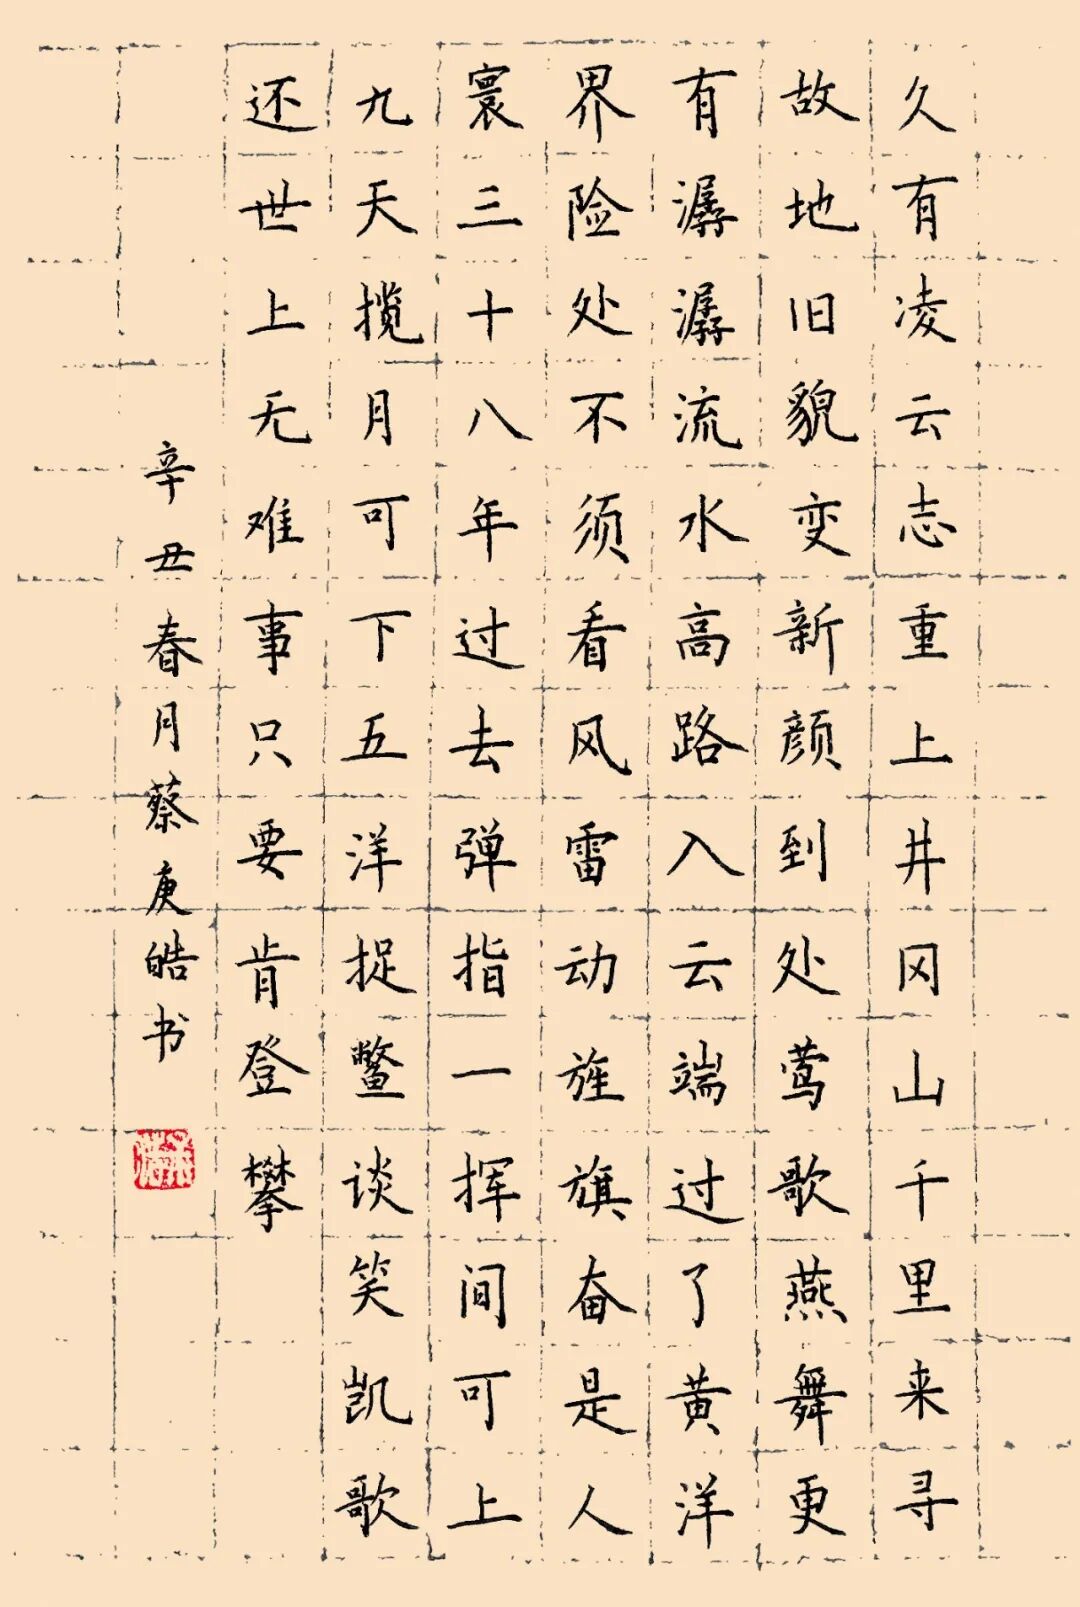 久有凌云志重上井冈山千里来寻
故地旧貌变新颜到处莺歌燕舞更
有潺潺流水高路入云端过了黄洋
界险处不须看风雷动旌旗奋是人
寰三十八年过去弹指一挥间可上
九天揽月可下五洋捉鳖谈笑凯歌
还世上无难事只要肯登攀
辛丑春月蔡庚皓书